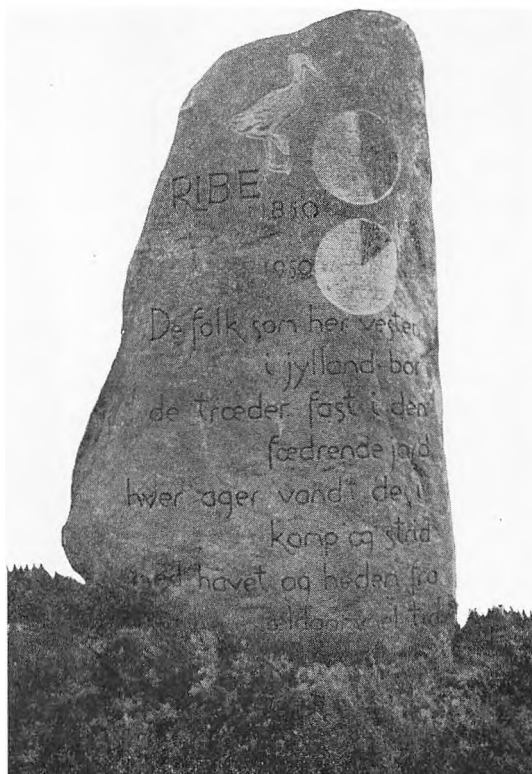 RIBE
1850
1950
De folk som her vester
i jylland bor
de træder fast i den
fædrende jord
hver ager vandt de i
kamp og strid
med havet og heden fra
tid